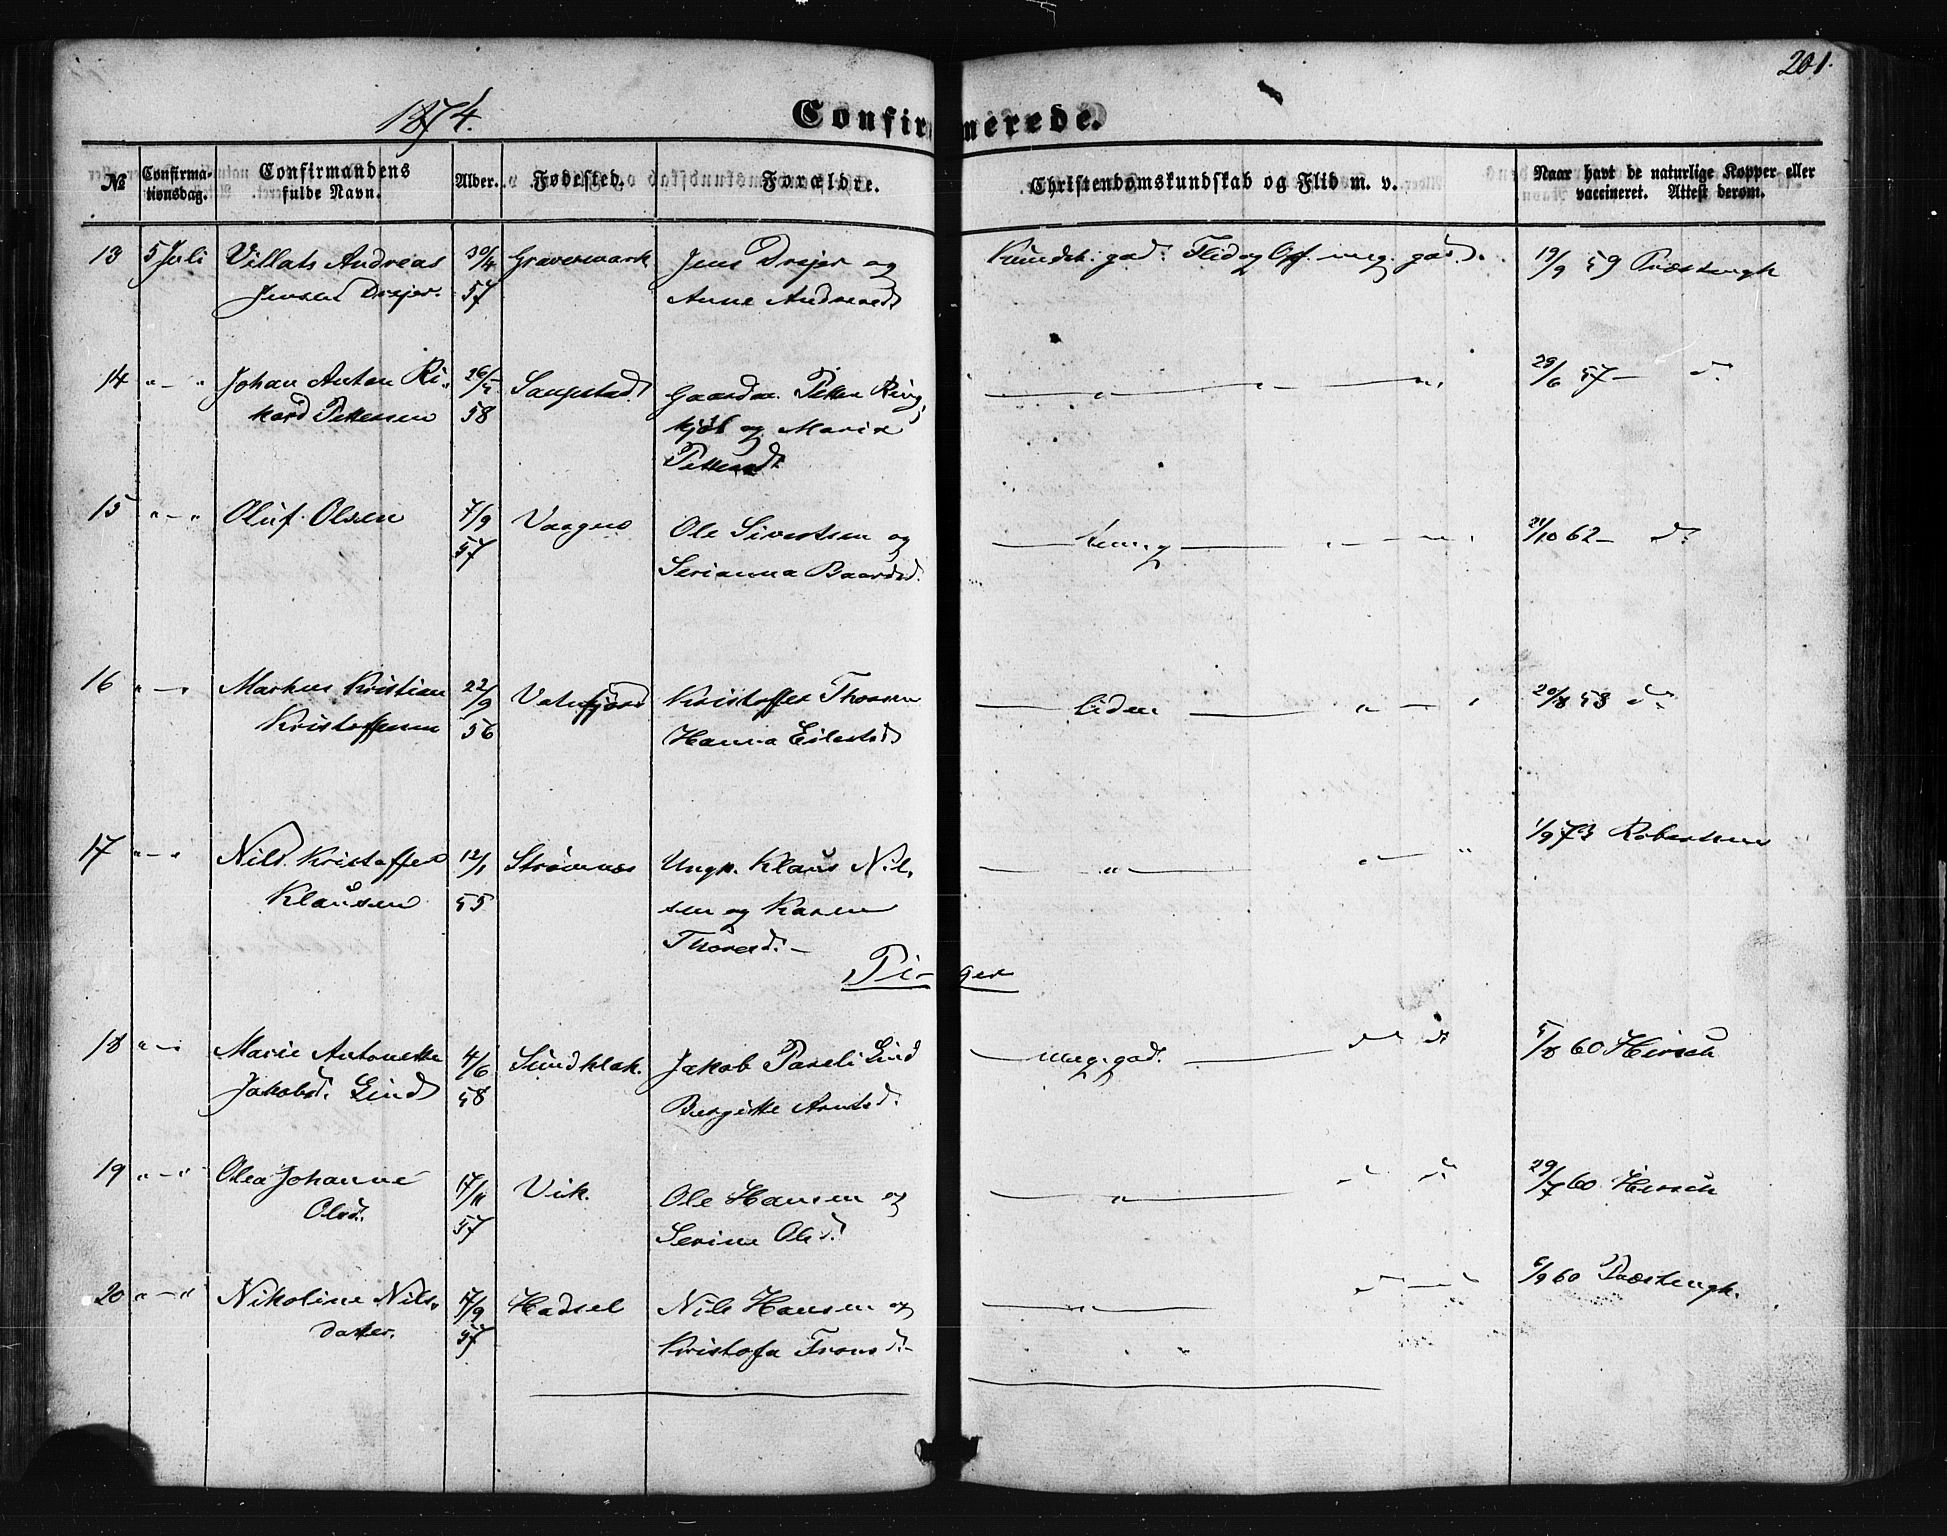 201.
1874. Confirmerede.
№ Confirmationsdag. Confirmandens fulde Navn. Alder. Fødested. Forældre. Christendomskundskab og Flid m. v. Naar havt de naturlige Kopper eller vaccineret. Attest derom.
13 5 Juli Villats Andreas 30/4 Gravermark Jens Drejer og Kundsk. god. Flid og Opf. meg. god. 19/9 59
Jensen Drejer. 57 Anne Andreasd
14 " — " Johan Anton Ri- 26/ Gaardm. Petter Ring- 29/6 57 — d.
kard Pettersen 58 kjøb og Maria
Pettersd.
15 " — " Oluf Olsen 7/9 Vaagnes Ole Sivertsen og 21/10 62 — d.
57 Serianna Baardsd.
16 " — " Markus Kristian 22/9 Vatnfjord Kristoffer Thorsen liden 20/8 58 d.
Kristoffersen 56 Hanna
17 " — " Nils Kristoffer 12/1 Strømnes Ungk. Klaus Nil- 1/9 73 Robertsen
Klausen 55 sen og Karen
Thoresd. —
Piger
18 " — " Marie Antonette 4/6 Sundklak. Jakob Parели Lind meg. god. 5/8 60 Hirsch
Jakobsd. Lind 58 Birgitte Arntsd.
19 " — " Olea Johanne 17/11 Vik. Ole Hansen og 29/7 60 Hirsch
Olsd. 57 Serine Olsd.
20 " — " Nikoline Nils- 17/9 Hadsel Nils Hansen og 6/9 60
datter. 57 Kristofa Fransd. —